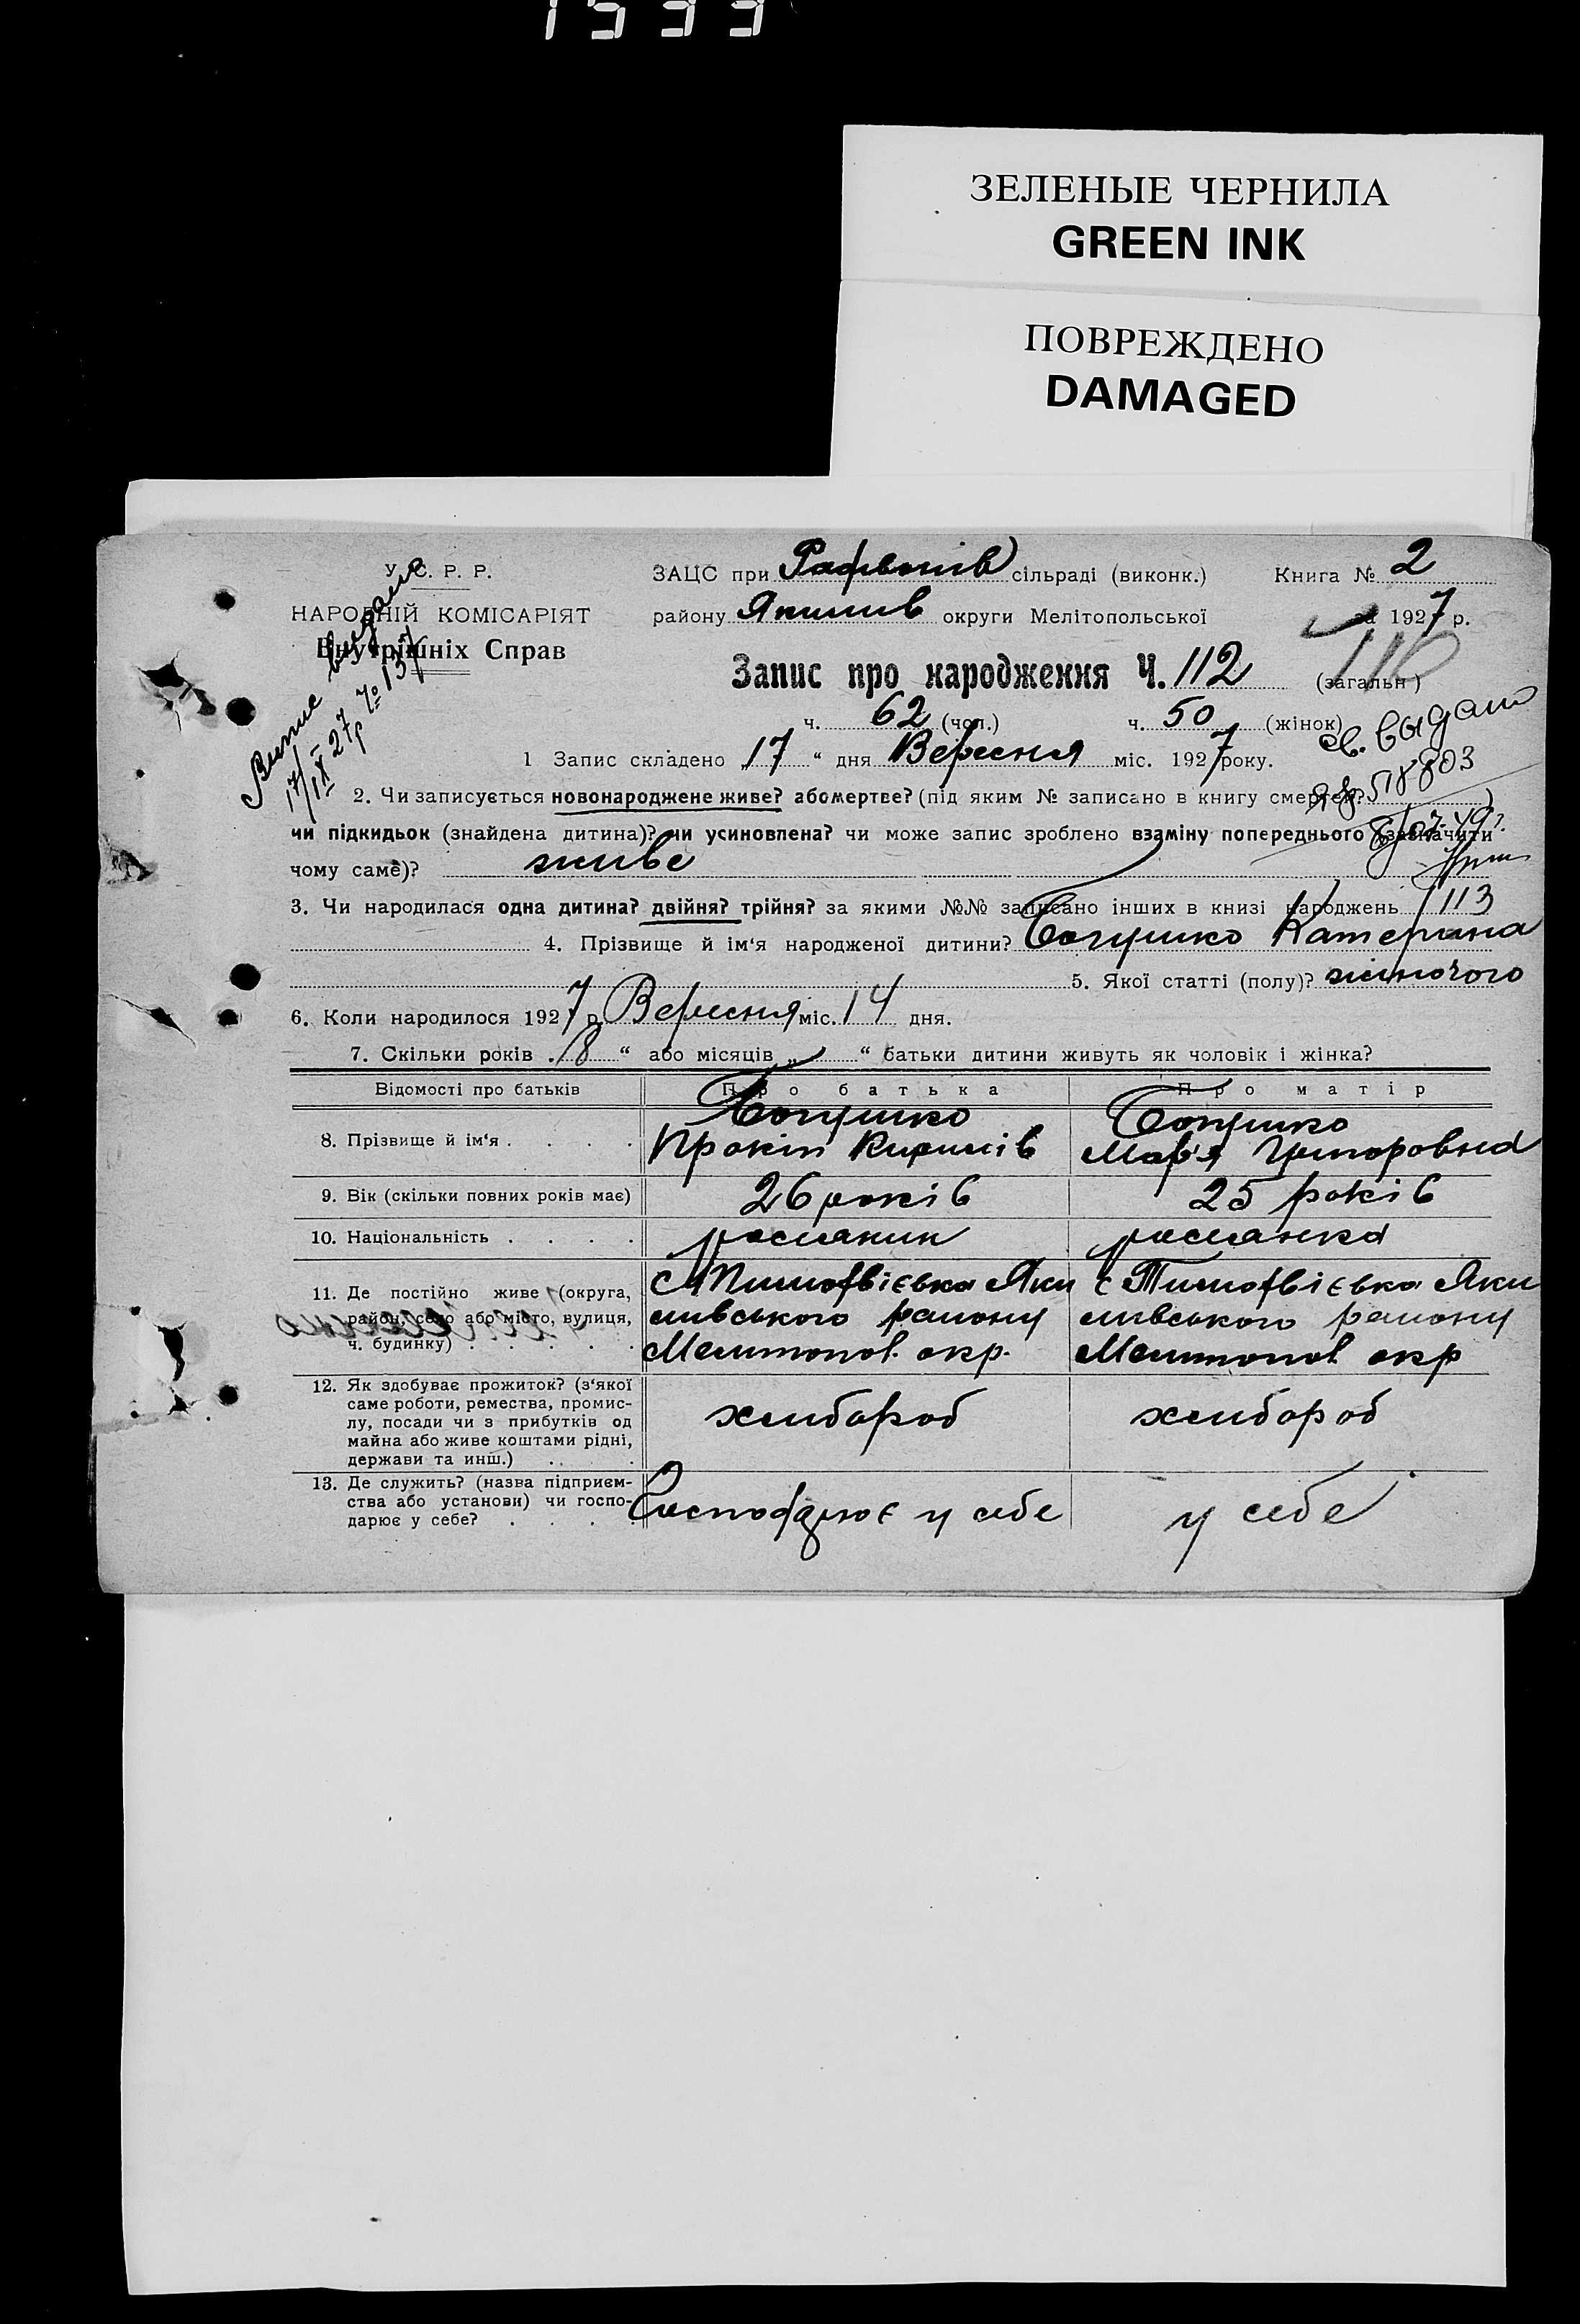 1533
ЗЕЛЕНЫЕ ЧЕРНИЛА
GREEN INK
ПОВРЕЖДЕНО
DAMAGED
У. С. Р. Р.
НАРОДНІЙ КОМІСАРІЯТ
Внутрішніх Справ
Випис видано
17/IX 27 р № 137
ЗАЦС при сільраді (виконк.) Книга № 2
району Якимів округи Мелітопольської за 1927 р.
Запис про народження Ч. 112 (загальн)
110
ч. 62 (чол.) ч. 50 (жінок)
св. выдано
1 Запис складено 17 “ дня Вересня міс. 1927 року.
518803
2. Чи записується новонароджене живе? або мертве? (під яким № записано в книгу смертей? )
чи підкидьок (знайдена дитина)? чи усиновлена? чи може запис зроблено взаміну попереднього (зазначити
чому саме)? живе
3. Чи народилася одна дитина? двійня? трійня? за якими №№ записано інших в книзі народжень 113
4. Прізвище й ім‘я народженої дитини? Богушко Катерина
5. Якої статті (полу)? жіночого
6. Коли народилося 1927 р. Вересня міс. 14 дня.
7. Скільки років 8 “ або місяців „ “ батьки дитини живуть як чоловік і жінка?
Відомості про батьків Про батька Про матір
8. Прізвище й ім‘я Богушко Прокіп Богушко Мар'я Григоровна
9. Вік (скільки повних років має) 26 років 25 років
10. Національність росіянин росіянка
11. Де постійно живе (округа, с Тимофвієвка Яки с Тимофвієвка Яки
район, село або місто, вулиця, мивського району мивського району
ч. будинку) Мелитопол. окр. Мелитопол окр
12. Як здобуває прожиток? (з‘якої
саме роботи, ремества, промис- хлибороб хлибороб
лу, посади чи з прибутків од
майна або живе коштами рідні,
держави та инш.)
13. Де служить? (назва підприєм-
ства або установи) чи госпо- Господарює у себе у себе
дарює у себе?